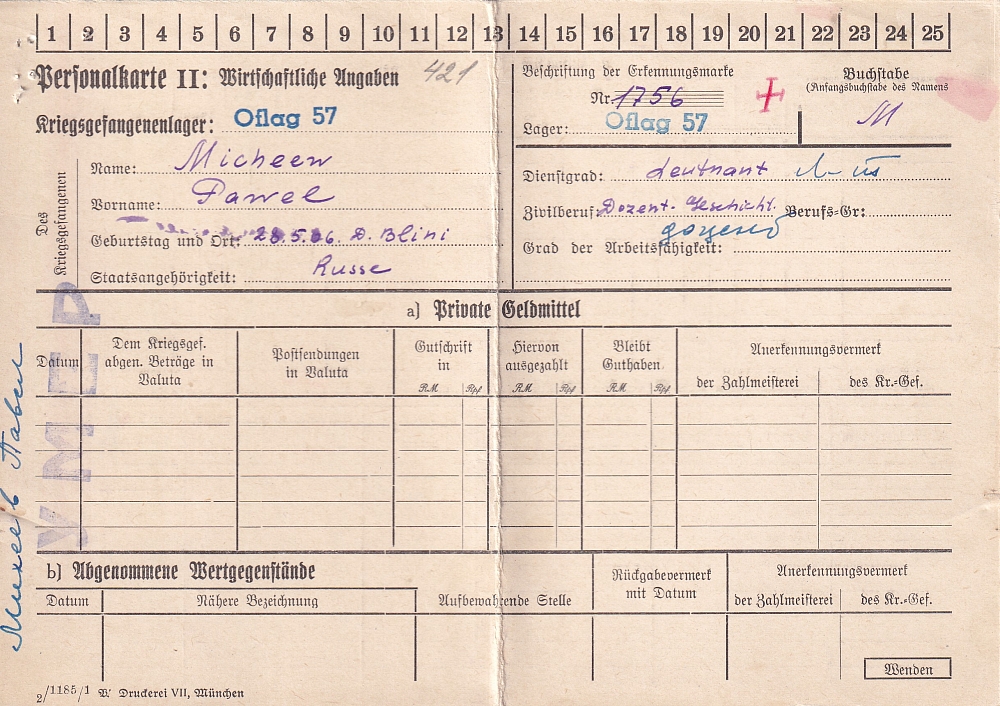 1 2 3 4 5 6 7 8 9 10 11 12 13 14 15 16 17 18 19 20 21 22 23 24 25
Personalkarte II: Wirtschaftliche Angaben
421
Kriegsgefangenenlager: Oflag 57
Des Kriegsgefangenen
Name: Micheew
Vorname: Pawel
Geburtstag und Ort: 28.5.06. D. Blini
Staatsangehörigkeit: Russe
Beschriftung der Erkennungsmarke
Nr. 1756
Lager: Oflag 57
Buchstabe
(Anfangsbuchstabe des Namens
M
Dienstgrad: Leutnant
Zivilberuf: Dozent. Geschicht. Berufs-Gr:
Grad der Arbeitsfähigkeit:
a) Private Geldmittel
Datum
Dem Kriegsgef. abgen. Beträge in Valuta
Postsendungen in Valuta
Gutschrift in
RM Rpf
Hiervon ausgezahlt
RM Rpf
Bleibt Guthaben
RM Rpf
Anerkennungsvermerk
der Zahlmeisterei des Kr.-Gef.
b) Abgenommene Wertgegenstände
Datum
Nähere Bezeichnung
Aufbewahrende Stelle
Rückgabevermerk mit Datum
Anerkennungsvermerk
der Zahlmeisterei des Kr.-Gef.
Wenden
2/1185/1 W. Druckerei VII, München
Михеев Павел
УМЕР